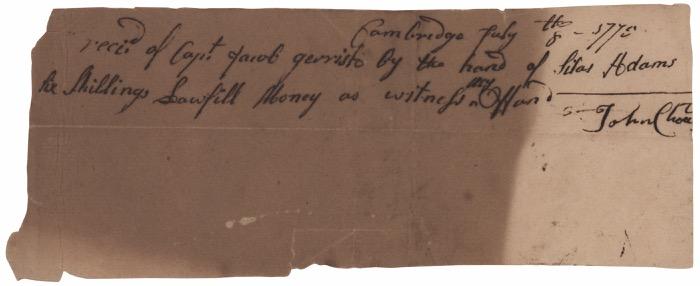 Cambredge July 8th - 1775
recid of Capt. Jacob gerrish by the hand of Silas Adams
six Shillings Lawfull Money as witness my Hand
John